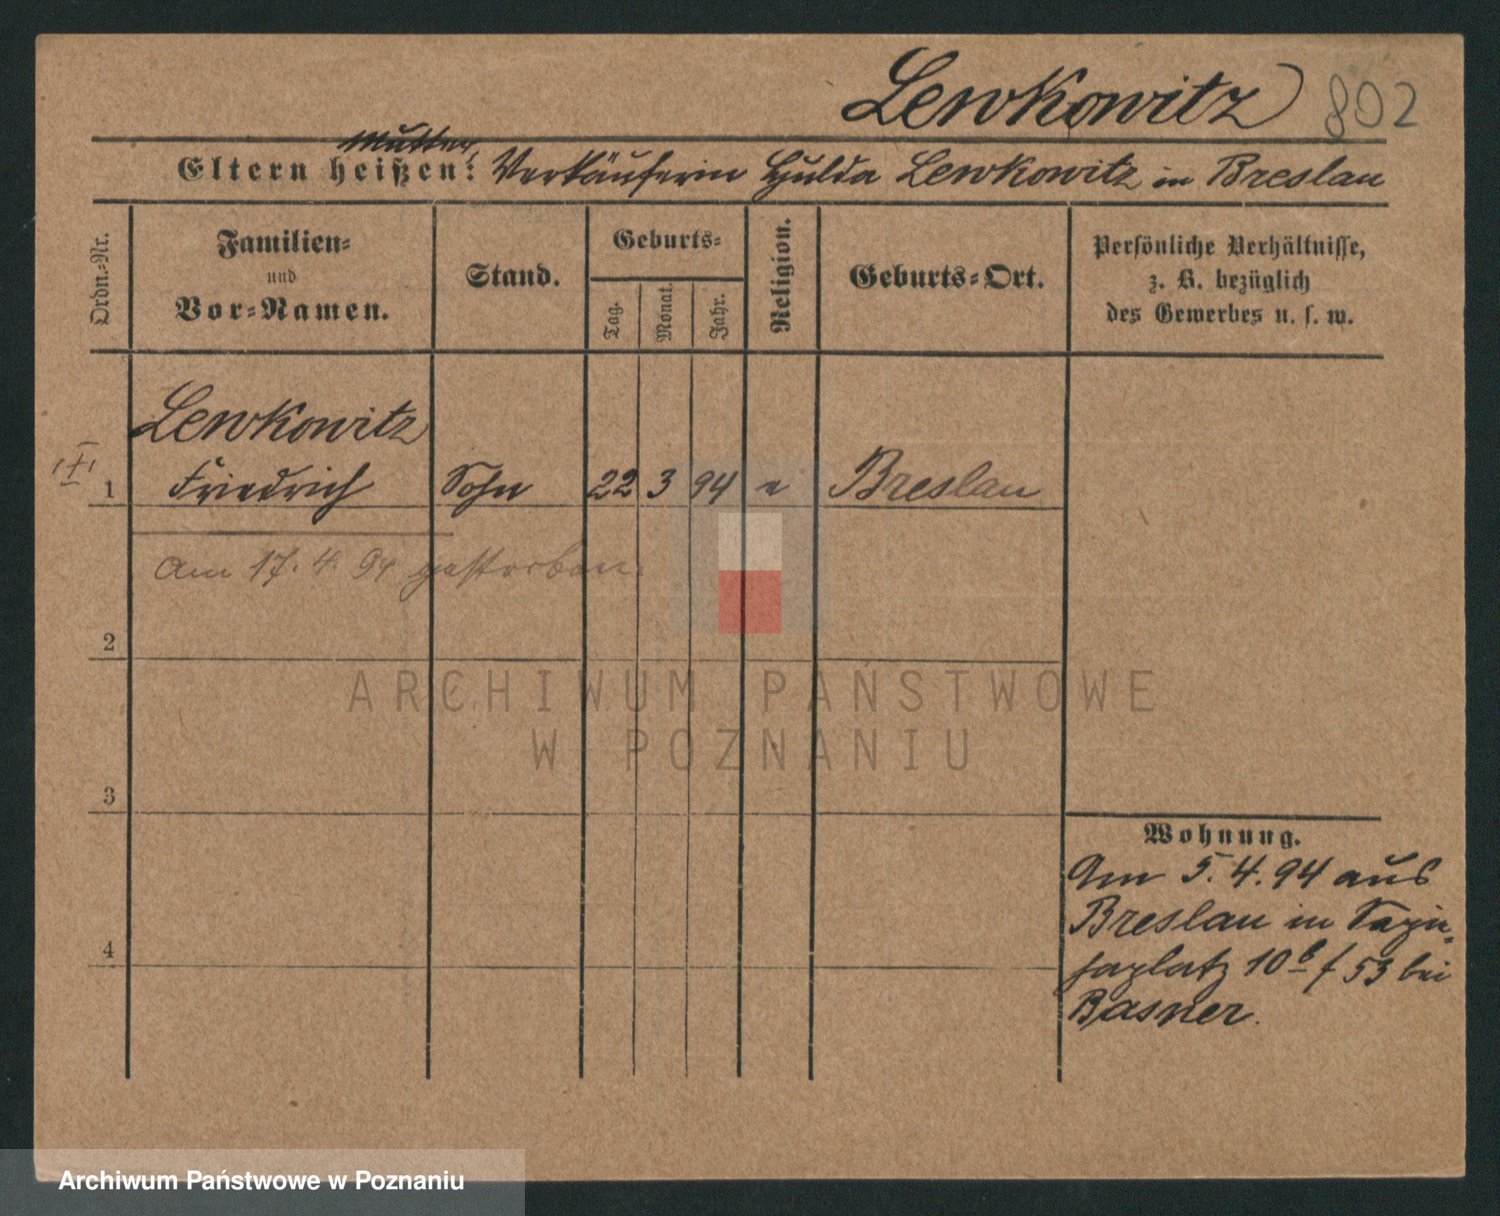 Lewkowitz 802
Mutter
Eltern heißen: Verkäuferin Hulda Lewkowitz in Breslau
Ordn.-Nr.
Familien-
und
Vor-Namen.
Stand.
Geburts-
Tag.
Monat.
Jahr.
Religion.
Geburts-Ort.
Persönliche Verhältnisse,
z. B. bezüglich
des Gewerbes u. s. w.
Lewkowitz
1 Friedrich Sohn 22 3 94 Breslau
Am 17. 4. 94 gestorben.
2
ARCHIWUM PAŃSTWOWE
W POZNANIU
3
Wohnung.
Am 5. 4. 94 aus
Breslau in Sapie-
haplatz 10b / 53 bei
Basner.
4
Archiwum Państwowe w Poznaniu